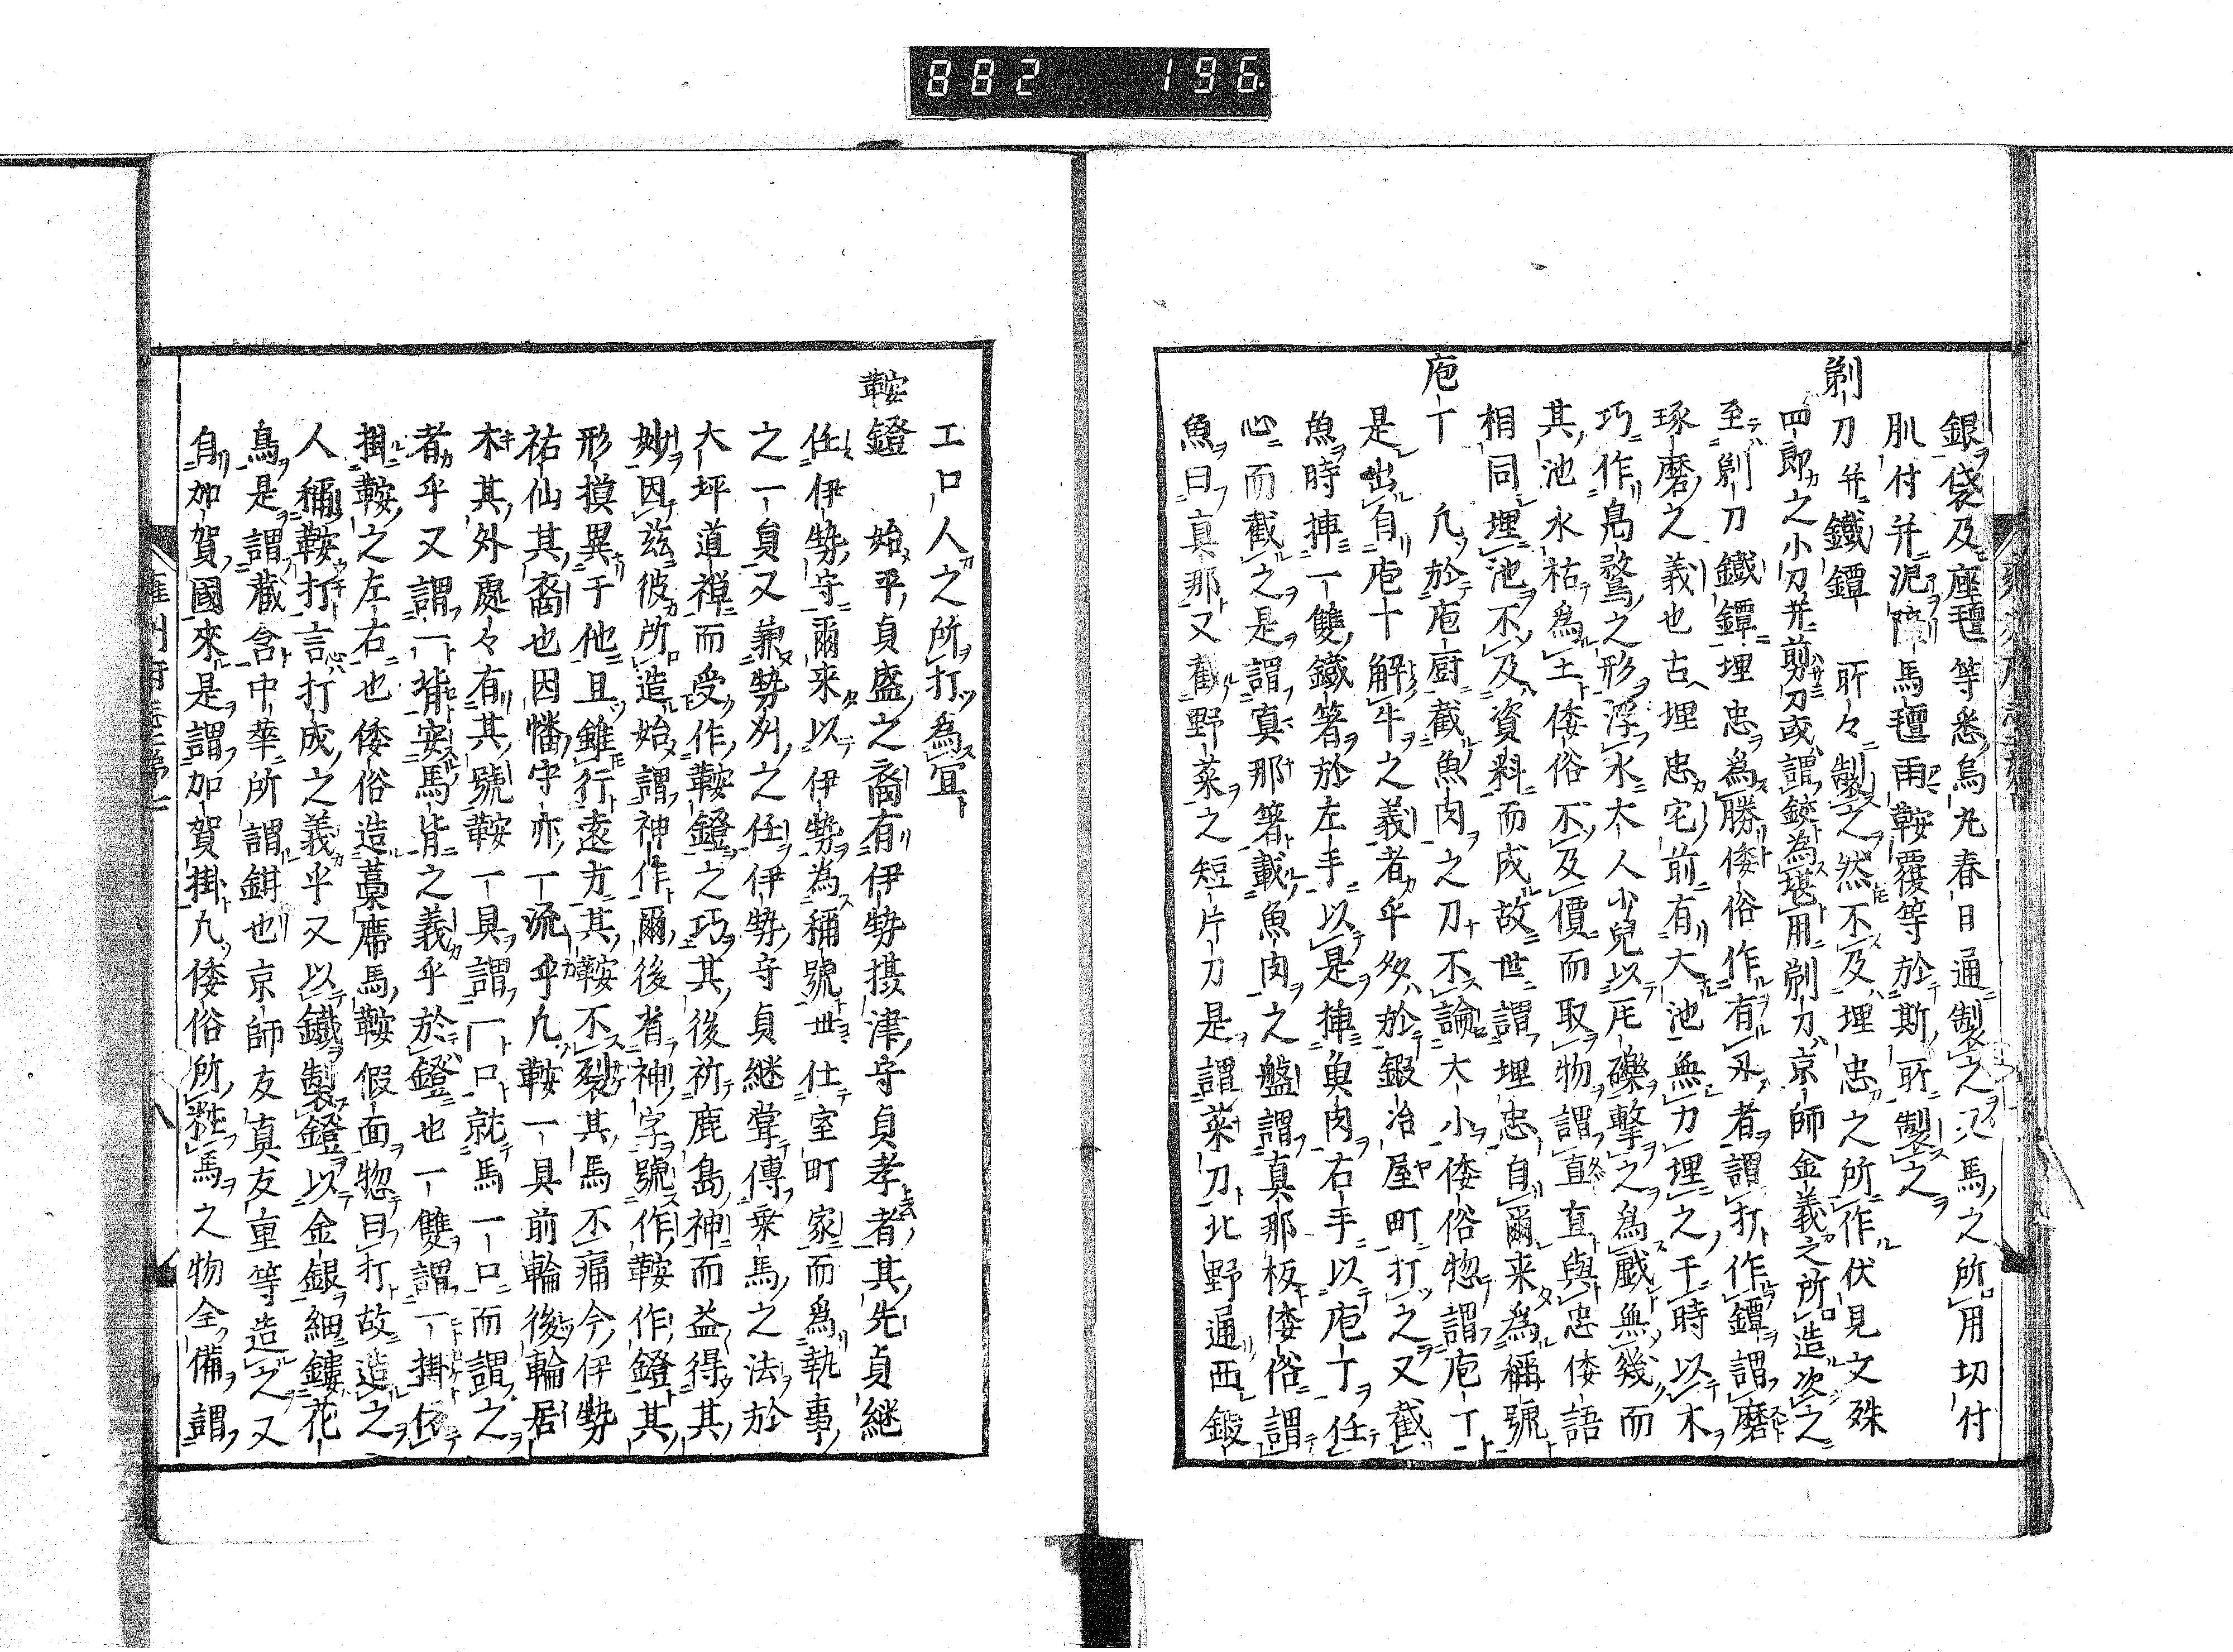 882 196
銀袋及座氊等悉烏丸春日通製之凢馬之所用切付
肌付并泥障馬氊雨鞍覆等於斯所製之
剃刀并鐵鐔 所々製之然不及埋忠之所作伏見文殊
四郎之小刀并剪刀或謂鋏為堪用剃刀京師金義之所造次之
至剃刀鐵鐔埋忠為勝倭俗作有刄者謂打作鐔謂磨
琢磨之義也古埋忠宅前有大池無力埋之于時以木
巧作鳧鶩之形浮水大人少兒以瓦礫擊之為戯無幾而
其池水枯為土倭俗不及價而取物謂直直與忠倭語
相同埋池不及資料而成故世謂埋忠自爾来為稱號
庖丁 凢於庖厨截魚肉之刀不論大小倭俗惣謂庖丁
是出自庖丁解牛之義者乎多於鍛冶屋町打之又截
魚時挿一雙鐵箸於左手以是挿魚肉右手以庖丁任
心而截之是謂真那箸載魚肉之盤謂真那板倭俗謂
魚曰真那又截野菜之短片刀是謂菜刀北野通西鍛
工口人之所打為宜
鞍鐙 始平貞盛之裔有伊勢摂津守貞孝者其先貞継
任伊勢守爾来以伊勢為稱號世仕室町家而爲執事
之一員又兼勢州之任伊勢守貞継甞傳乗馬之法於
大坪道禅而受作鞍鐙之巧其後祈鹿島神而益得其
妙因玆彼所造始謂神作爾後省神字號作鞍作鐙其
形摸異于他且雖行遠方其鞍不裂其馬不痛今伊勢
祐仙其裔也因幡守亦一流乎凢鞍一具前輪後輪居
木其外處々有其號鞍一具謂一口就馬一口而謂之
者乎又謂一背安馬背之義乎於鐙也一雙謂一掛依
掛鞍之左右也倭俗造藁席馬鞍假面惣曰打故造之
人稱鞍打言打成之義乎又以鐵製鐙以金銀細鏤花
鳥是謂藏含中華所謂鉗也京師友真友重等造之又
自加賀國來是謂加賀掛凢倭俗所粧馬之物全備謂